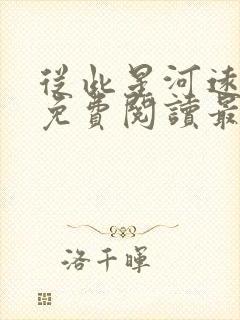 從此星河遠
免費閱讀最
洛千暉